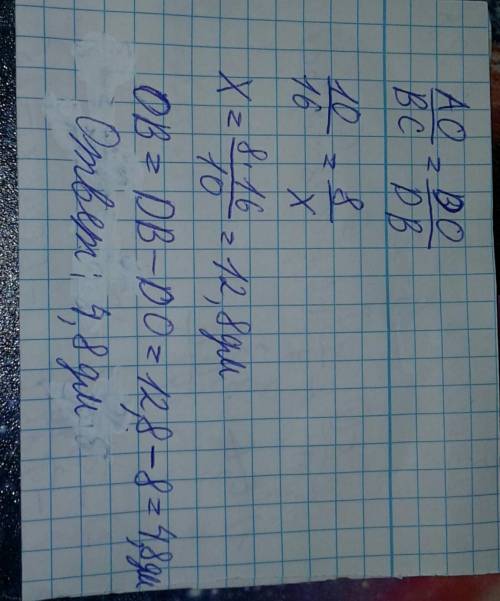 AO/BC = DO/DB
10/16 = 8/x
x = 8·16/10 = 12,8дм
OB = DB − DO = 12,8 − 8 = 4,8дм
Ответ: 4,8дм